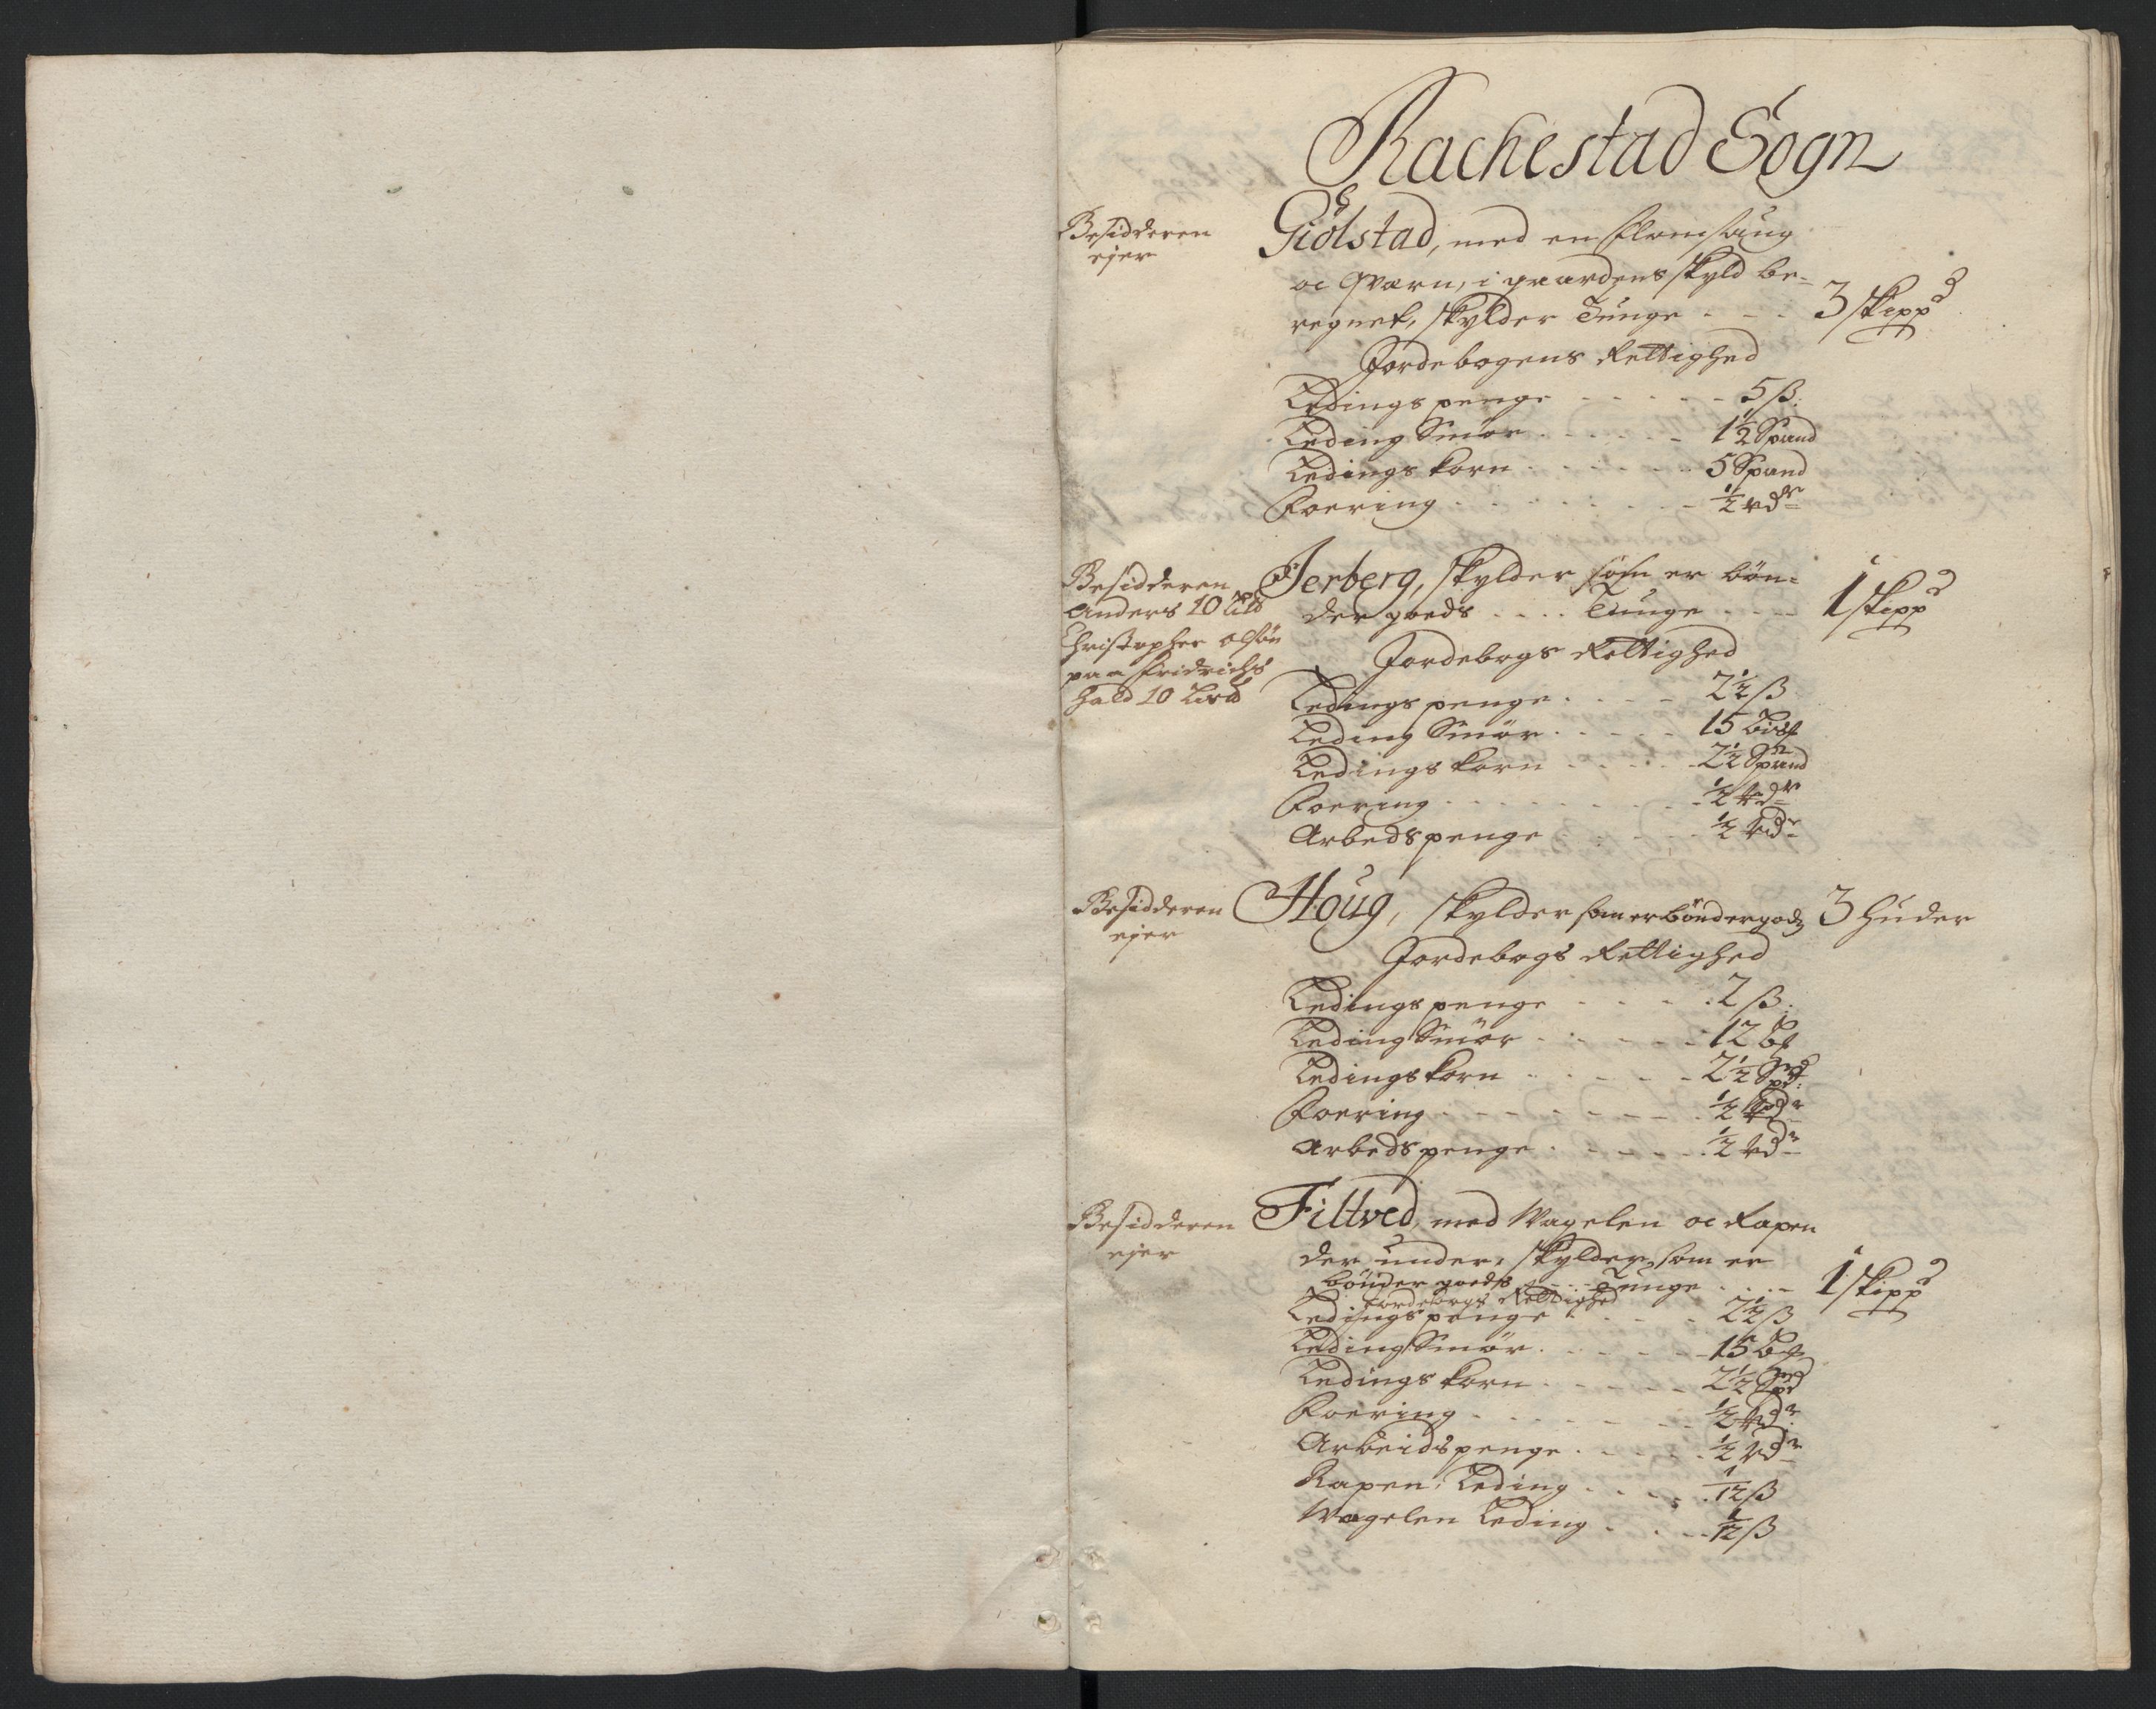 Rachestad Sogn
Besidderen
ejer
Giølstad, med en flomsaug
oc Qværn, i gaardens skyld be-
regnet, skylder Tunge - - - 3 skippd
Jordebogens Rettighed
Ledingspenge - - - - - 5 ß.
Leding Smør - - - - - 1½ Spand
Ledings korn - - - - - 5 Spand
Foering - - - - - - - ½ rdr
Besidderen
Anders 10 Lisd
Christopher olsøn
paa Fridrichs
hald 10 Lisd
Jerberg, skylder som er bøn-
der goeds - - - - Tunge - - - - 1 skippd
Jordebogs Rettighed
Ledingspenge - - - - 2½ ß
Leding Smør - - - - - 15 bisf
Ledings korn - - - - - 2½ Spand
Foering - - - - - - - - ½ rdr
Arbedspenge - - - - - ½ rdr
Besidderen
ejer
Houg, skylder som er bøndergods 3 huder
Jordebogs Rettighed
Ledingspenge - - - - 2 ß.
Leding Smør - - - - - 12
Ledingskorn - - - - - 2½
Foering - - - - - - - ½
Arbedspenge - - - - - ½ rdr
Besidderen
ejer
Filtved, med Wagelen oc Rapen
der under, skylder som er
bønder goeds - - - Tunge - - - - 1 skippd
Jordebogs Rettighed
Ledingspenge - - - - 2½ ß
Leding Smør - - - - - 15
Ledings korn - - - - - 2½
Foering - - - - - - - ½ rdr
Arbeidspenge - - - - - ½ rdr
Rapen, Leding - - - - 1/12 ß
Wagelen Leding - - - - 1/12 ß